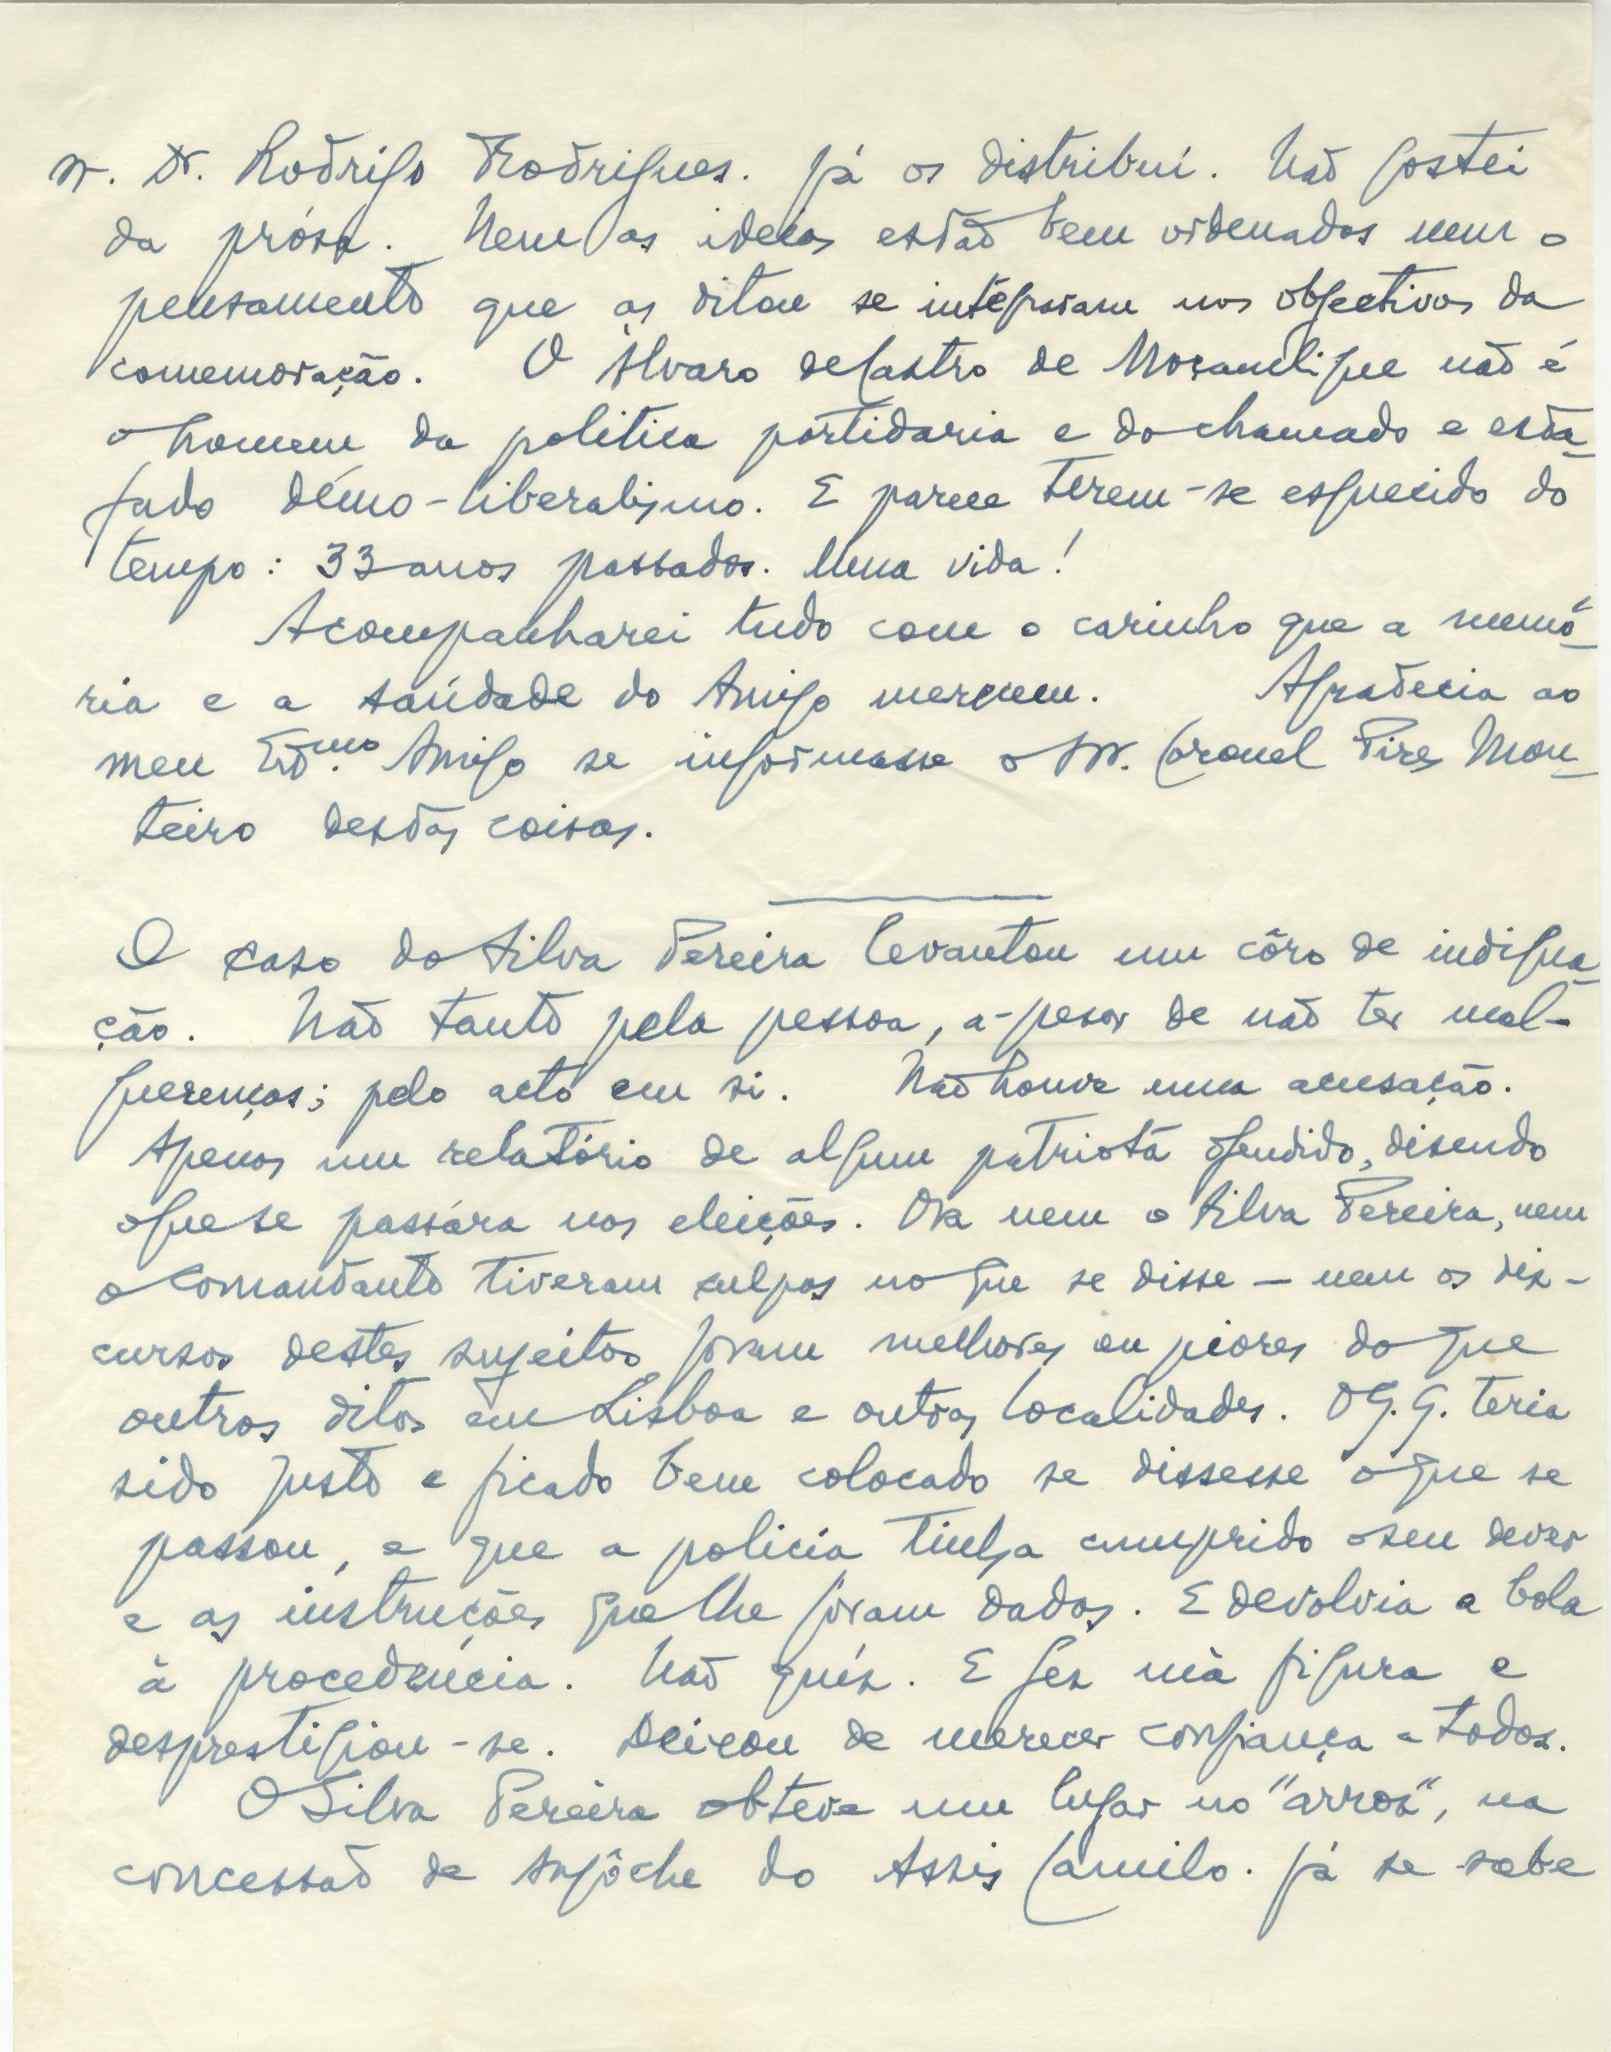 sr. Dr. Rodrigo Rodrigues. Já os distribuí. Não gostei
da prósa. Nem as ideias estão bem ordenadas nem o
pensamento que as ditou se integraram nos objectivos da
comemoração. O Álvaro de Castro de Moçambique não é
o homem da politica partidaria e do chamado e esta-
fado démo-liberalismo. E parece terem-se esquecido do
tempo: 33 anos passados. Uma vida!
Acompanharei tudo com o carinho que a memó-
ria e a saúdade do Amigo merecem. Agradecia ao
meu Exmo. Amigo se informasse o Sr. Coronel Pires Mon-
teiro destas coisas.
O caso do Silva Pereira levantou um côro de indigna-
ção. Não tanto pela pessoa, a-pesar de não ter mal-
querenças; pelo acto em si. Não houve uma acusação.
Apenas um relatório de algum patriota ofendido, disendo
o que se passára nas eleições. Ora nem o Silva Pereira, nem
o Comandante tiveram culpas no que se disse — nem os dis-
cursos destes sujeitos foram melhores ou piores do que
outros ditos em Lisboa e outras localidades. O G.G. teria
sido justo e ficado bem colocado se dissesse o que se
passou, e que a policia tinha cumprido o seu dever
e as instruções que lhe foram dadas. E devolvia a bola
à procedencia. Não quís. E fez má figura e
desprestigiou-se. Deixou de merecer confiança a todos.
O Silva Pereira obteve um lugar no "arroz", na
concessão de Angôche do Assis Camilo. Já se sabe